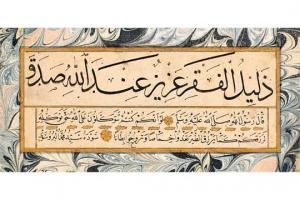 ذليل الفقر عزيز عند الله صدق
قال رسول الله صلى الله عليه وسلم لو أنكم كنتم توكلون على الله حق توكله
لرزقكم كما يرزق الطير تغدو خماصا وتروح بطانا